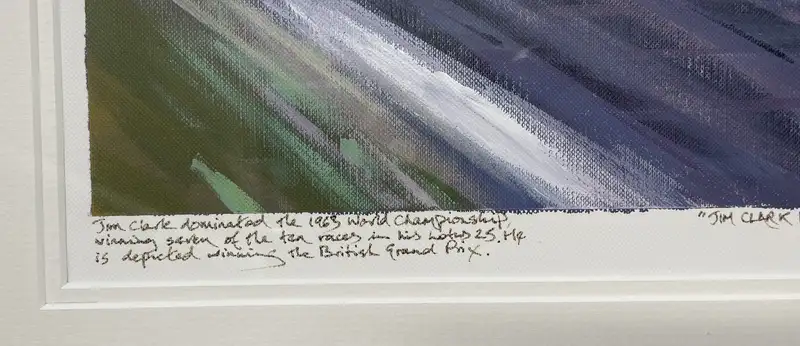 Jim Clark dominated the 1963 World Championship,
winning seven of the ten races in his Lotus 25. He
is depicted winning the British Grand Prix.
"JIM CLARK